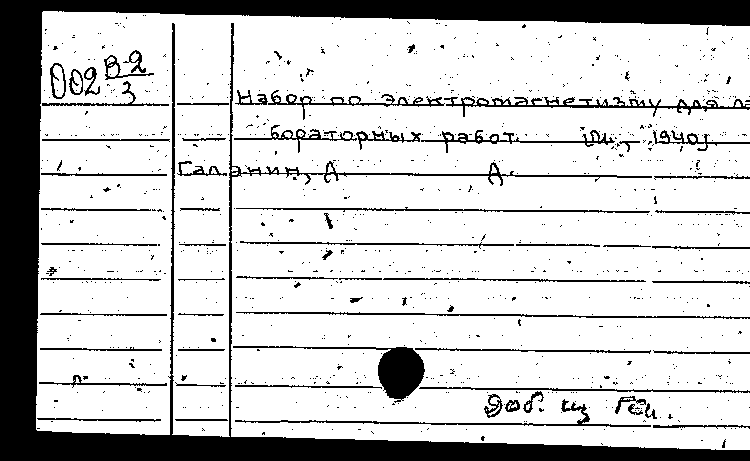 002 В-2/3
Набор по электромагнетизму для ла-
бораторных работ. [М., 1940].
Галанин, Д. Д.
Доб. из Ген.